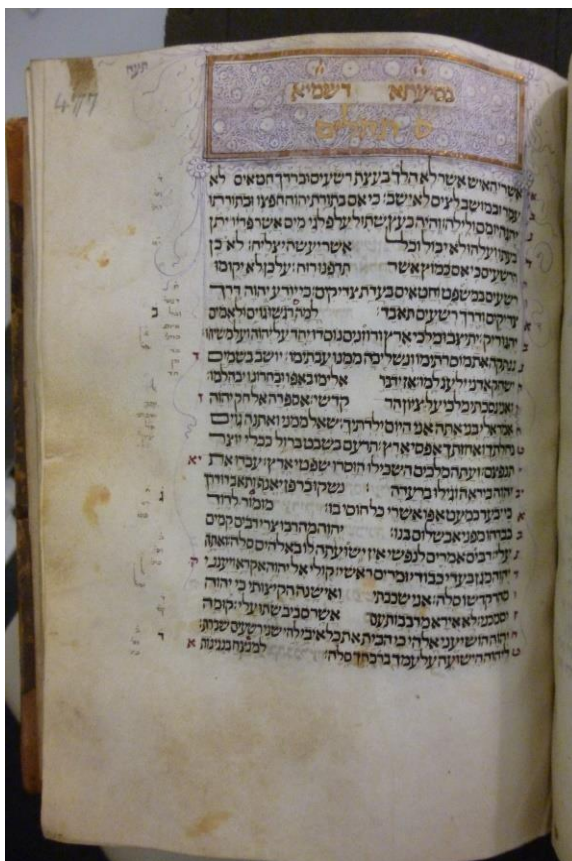 477
בסיעתא דשמיא
ס תהלים
אשרי האיש אשר לא הלך בעצת רשעים ובדרך חטאים לא
עמד ובמושב לצים לא ישב: כי אם בתורת יהוה חפצו ובתורתו
יהגה יומם ולילה: והיה כעץ שתול על פלגי מים אשר פריו יתן
בעתו ועלהו לא יבול וכל אשר יעשה יצליח: לא כן
הרשעים כי אם כמוץ אשר תדפנו רוח: על כן לא יקומו
רשעים במשפט וחטאים בעדת צדיקים: כי יודע יהוה דרך
צדיקים ודרך רשעים תאבד: למה רגשו גוים ולאמים
יהגו ריק: יתיצבו מלכי ארץ ורוזנים נוסדו יחד על יהוה ועל משיחו:
ננתקה את מוסרתימו ונשליכה ממנו עבתימו: יושב בשמים
ישחק אדני ילעג למו: אז ידבר אלימו באפו ובחרונו יבהלמו:
ואני נסכתי מלכי על ציון הר קדשי: אספרה אל חק יהוה
אמר אלי בני אתה אני היום ילדתיך: שאל ממני ואתנה גוים
נחלתך ואחזתך אפסי ארץ: תרעם בשבט ברזל ככלי יוצר
תנפצם: ועתה מלכים השכילו הוסרו שפטי ארץ: עבדו את
יהוה ביראה וגילו ברעדה: נשקו בר פן יאנף ותאבדו דרך
כי יבער כמעט אפו אשרי כל חוסי בו: מזמור לדוד
בברחו מפני אבשלום בנו: יהוה מה רבו צרי רבים קמים
עלי: רבים אמרים לנפשי אין ישועתה לו באלהים סלה: ואתה
יהוה מגן בעדי כבודי ומרים ראשי: קולי אל יהוה אקרא ויענני
מהר קדשו סלה: אני שכבתי ואישנה הקיצותי כי יהוה
יסמכני: לא אירא מרבבות עם אשר סביב שתו עלי: קומה
יהוה הושיעני אלהי כי הכית את כל איבי לחי שני רשעים שברת:
ליהוה הישועה על עמך ברכתך סלה: למנצח בנגינות